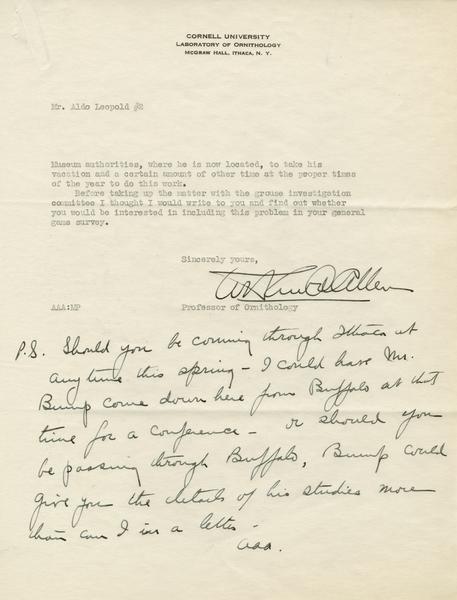 CORNELL UNIVERSITY
LABORATORY OF ORNITHOLOGY
MCGRAW HALL, ITHACA, N. Y.
Mr. Aldo Leopold #2
Museum authorities, where he is now located, to take his
vacation and a certain amount of other time at the proper times
of the year to do this work.
Before taking up the matter with the grouse investigation
committee I thought I would write to you and find out whether
you would be interested in including this problem in your general
game survey.
Sincerely yours,
Arthur A Allen
AAA:MP Professor of Ornithology
P.S. Should you be coming through Ithaca at
anytime this spring - I could have Mr.
Bump come down here from Buffalo at that
time for a conference - or should you
be passing through Buffalo, Bump could
give you the details of his studies more
than can I in a letter -
AAA.